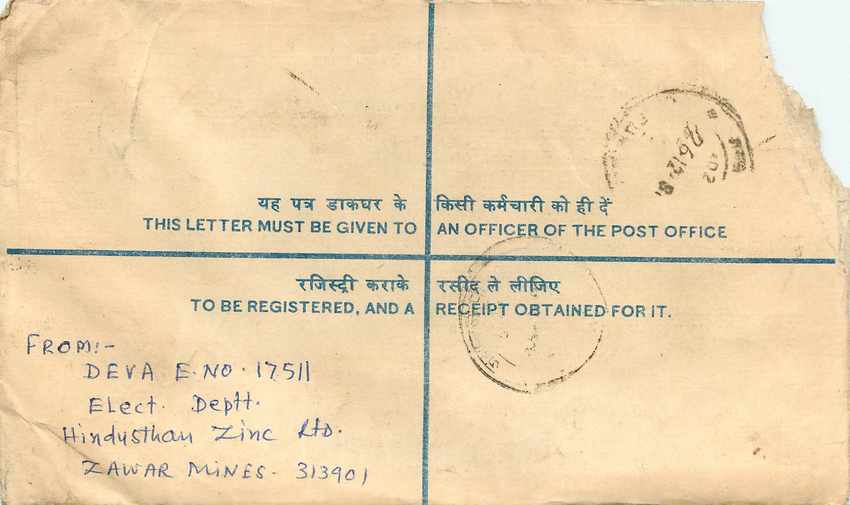 यह पत्र डाकघर के किसी कर्मचारी को ही दें
THIS LETTER MUST BE GIVEN TO AN OFFICER OF THE POST OFFICE
रजिस्ट्री कराके रसीद ले लीजिए
TO BE REGISTERED, AND A RECEIPT OBTAINED FOR IT.
FROM:-
DEVA E.NO. 17511
Elect. Deptt.
Hindusthan Zinc Ltd.
ZAWAR MINES- 313901